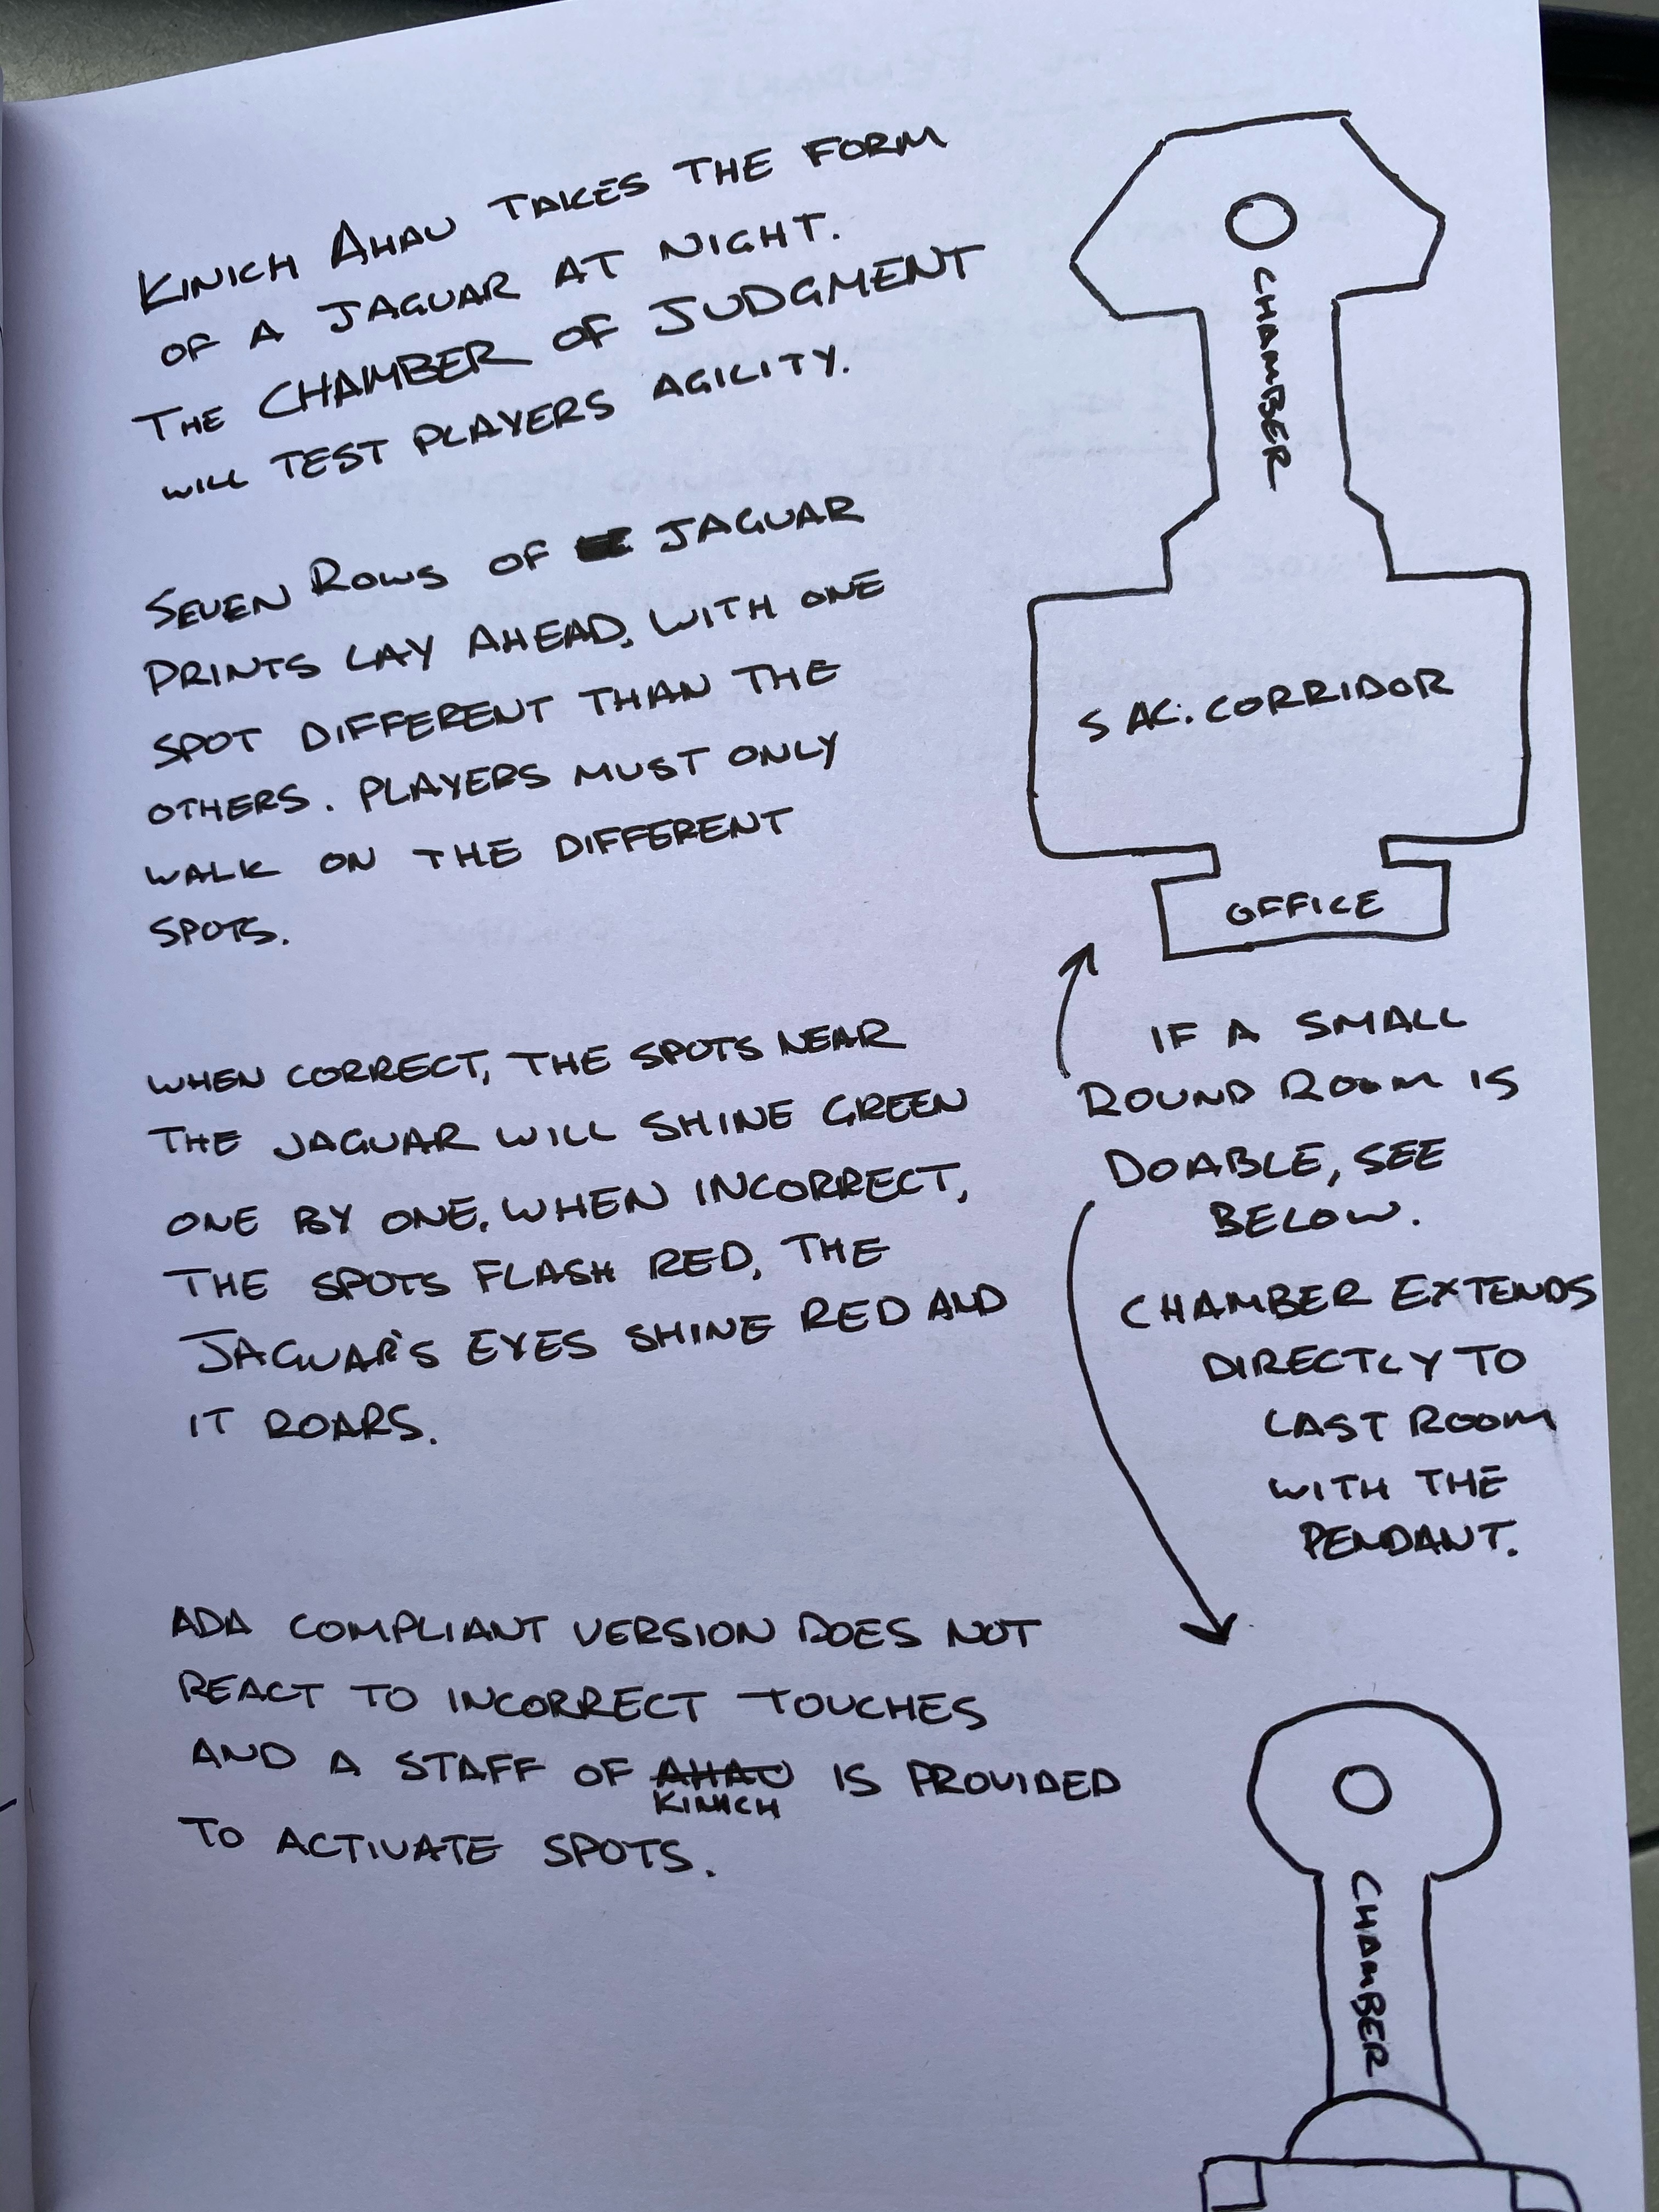 KINICH AHAU TAKES THE FORM
OF A JAGUAR AT NIGHT.
THE CHAMBER OF JUDGMENT
WILL TEST PLAYERS AGILITY.
SEVEN ROWS OF JAGUAR
PRINTS LAY AHEAD, WITH ONE
SPOT DIFFERENT THAN THE
OTHERS. PLAYERS MUST ONLY
WALK ON THE DIFFERENT
SPOTS.
WHEN CORRECT, THE SPOTS NEAR
THE JAGUAR WILL SHINE GREEN
ONE BY ONE. WHEN INCORRECT,
THE SPOTS FLASH RED, THE
JAGUAR'S EYES SHINE RED AND
IT ROARS.
ADA COMPLIANT VERSION DOES NOT
REACT TO INCORRECT TOUCHES
AND A STAFF OF AHAU IS PROVIDED
KINICH
TO ACTIVATE SPOTS.
CHAMBER
SAC. CORRIDOR
OFFICE
IF A SMALL
ROUND ROOM IS
DOABLE, SEE
BELOW.
CHAMBER EXTENDS
DIRECTLY TO
LAST ROOM
WITH THE
PENDANT.
CHAMBER